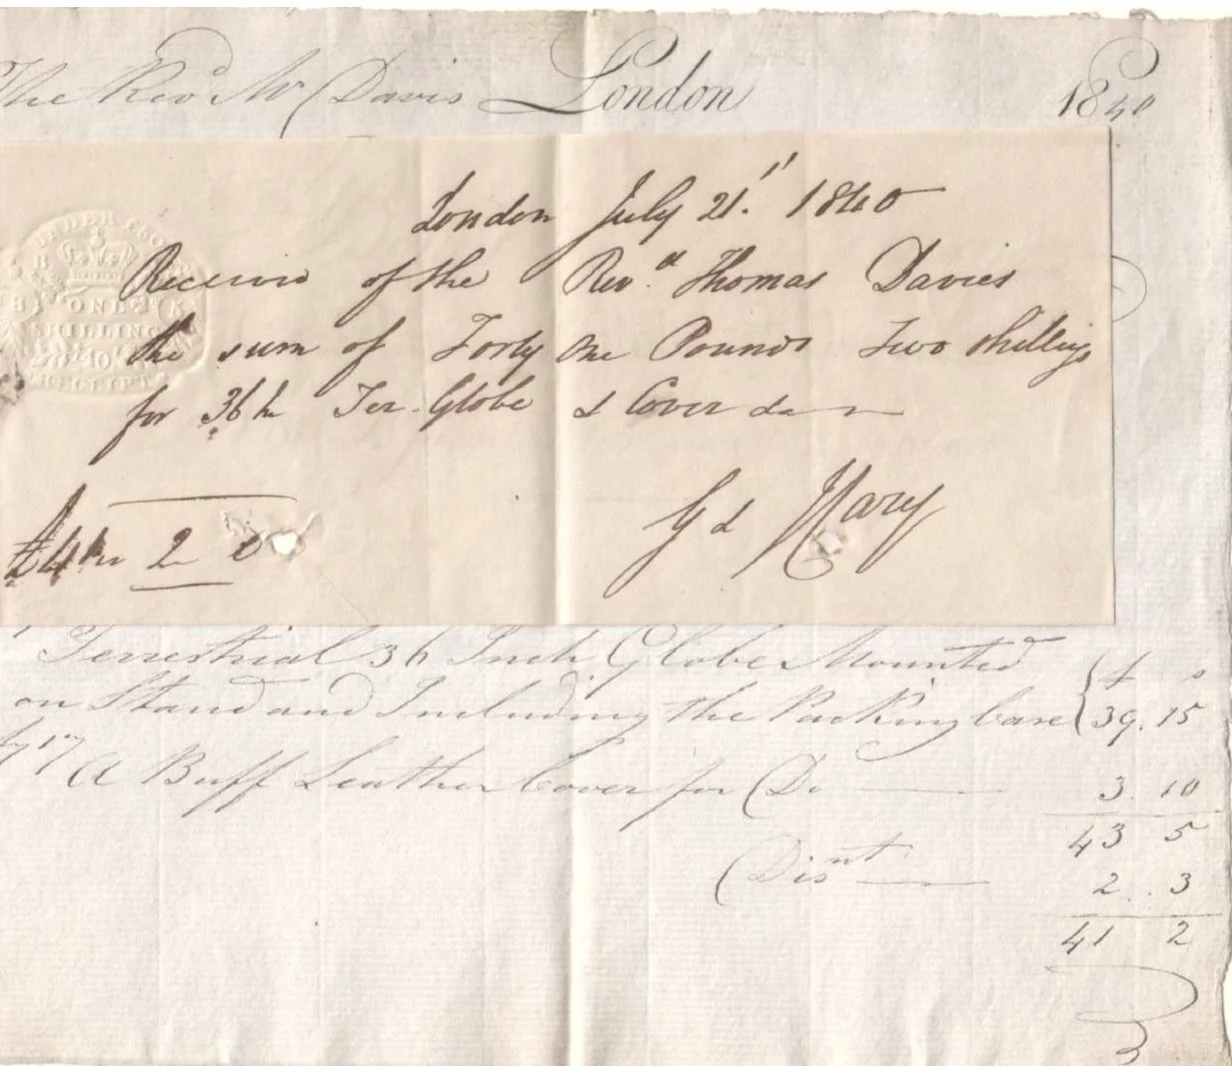 The Revd Mr Davis London 1840
London July 21st 1840
Received of the Revd Thomas Davies
the sum of Forty One Pounds Two Shillings
for 36 In Ter. Globe & Cover
£41 " 2
Gd & J Cary
UNDER £50
ONE
SHILLING
RECEIPT
Terrestrial 36 Inch Globe Mounted £ s
on Stand and Including the Packing Case 39. 15
17 A Buff Leather Cover for Do 3. 10
43 5
Disnt 2 .. 3
41 2